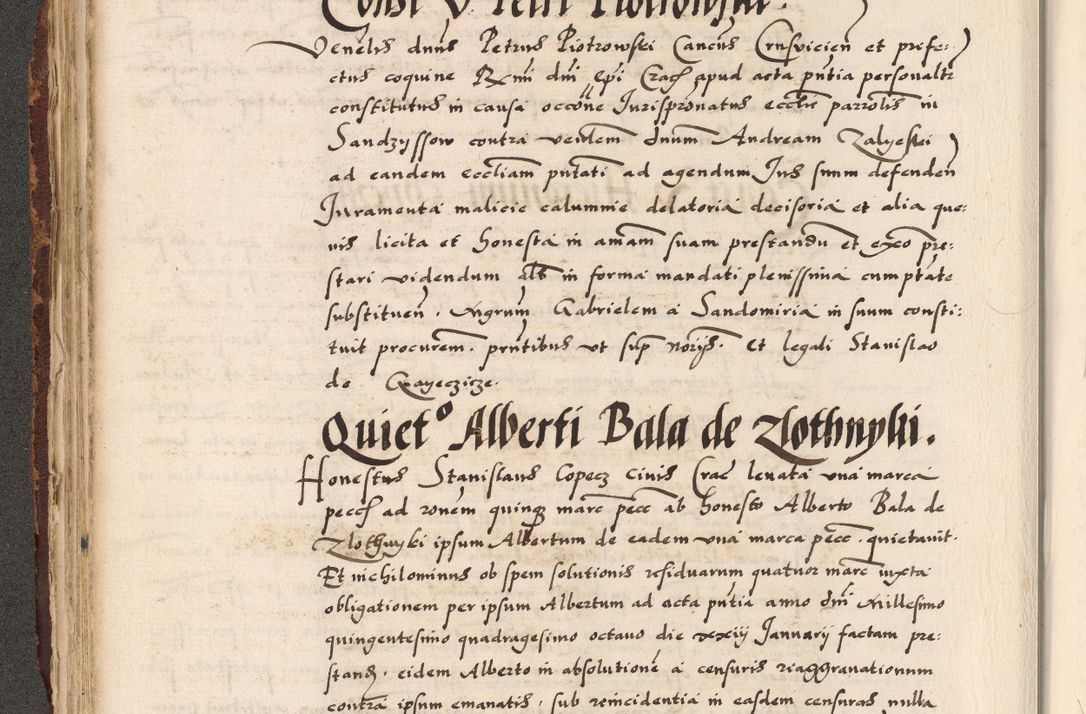 Const V. Petri Piotrowski.
Venelis dnus Petrus Piotrowski Cancus Crusvicien et prefe:
ctus coquine Rmi dni epi Crac apud acta pntia personalr
constitutus in causa occone Jurispronatus ecclie parrolis in
Sandzyssow contra venlem dnum Andream Zalyeski
ad eandem eccliam pntati ad agendum Jus suum defenden
Juramenta malicie calumnie delatoria decisoria et alia que:
vis licita et honesta in amam suam prestandu et exo pre:
stari videndum alb in forma mandati plenissima cum ptate
substituen. Mgrum Gabrielem a Sandomiria in suum consti:
tuit procurem. pntibus ut sup norijs. Et legali Stanislao
de
Quieto Alberti Bala de Zlothnyki.
Honestus Stanislaus Copecz civis Crac levata una marca
pecc ad ronem quinque marc pecc ab honesto Alberto Bala de
Zlothnyki ipsum Albertum de eadem una marca pecc. quietavit.
Et nichilominus ob spem solutionis residuarum quatuor marc iuxta
obligationem per ipsum Albertum ad acta pntia anno dni Millesimo
quingentesimo quadragesimo octavo die xxiij Januarij factam pre:
stand. eidem Alberto in absolutione a censuris riaggravationum
contra ipsum emanatis. sub reincidentia in easdem censuras nulla